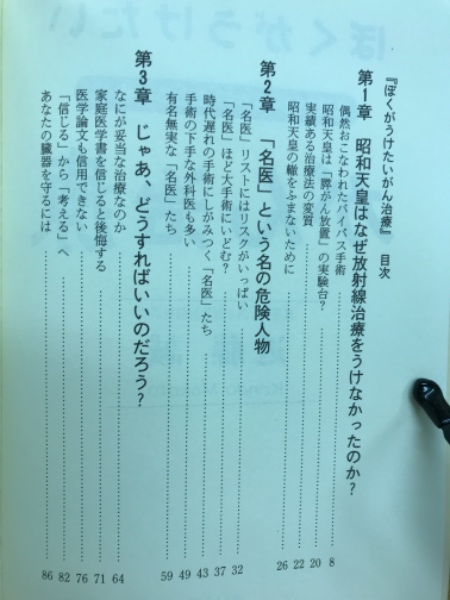 『ぼくがうけたいがん治療』 目次
第1章 昭和天皇はなぜ放射線治療をうけなかったのか?
偶然おこなわれたバイパス手術 8
昭和天皇は「膵がん放置」の実験台? 20
実績ある治療法の変質 22
昭和天皇の轍をふまないために 26
第2章 「名医」という名の危険人物
「名医」リストにはリスクがいっぱい 32
「名医」ほど大手術にいどむ? 37
時代遅れの手術にしがみつく「名医」たち 43
手術の下手な外科医も多い 49
有名無実な「名医」たち 59
第3章 じゃあ、どうすればいいのだろう?
なにが妥当な治療なのか 64
家庭医学書を信じると後悔する 71
医学論文も信用できない 76
「信じる」から「考える」へ 82
あなたの臓器を守るには 86